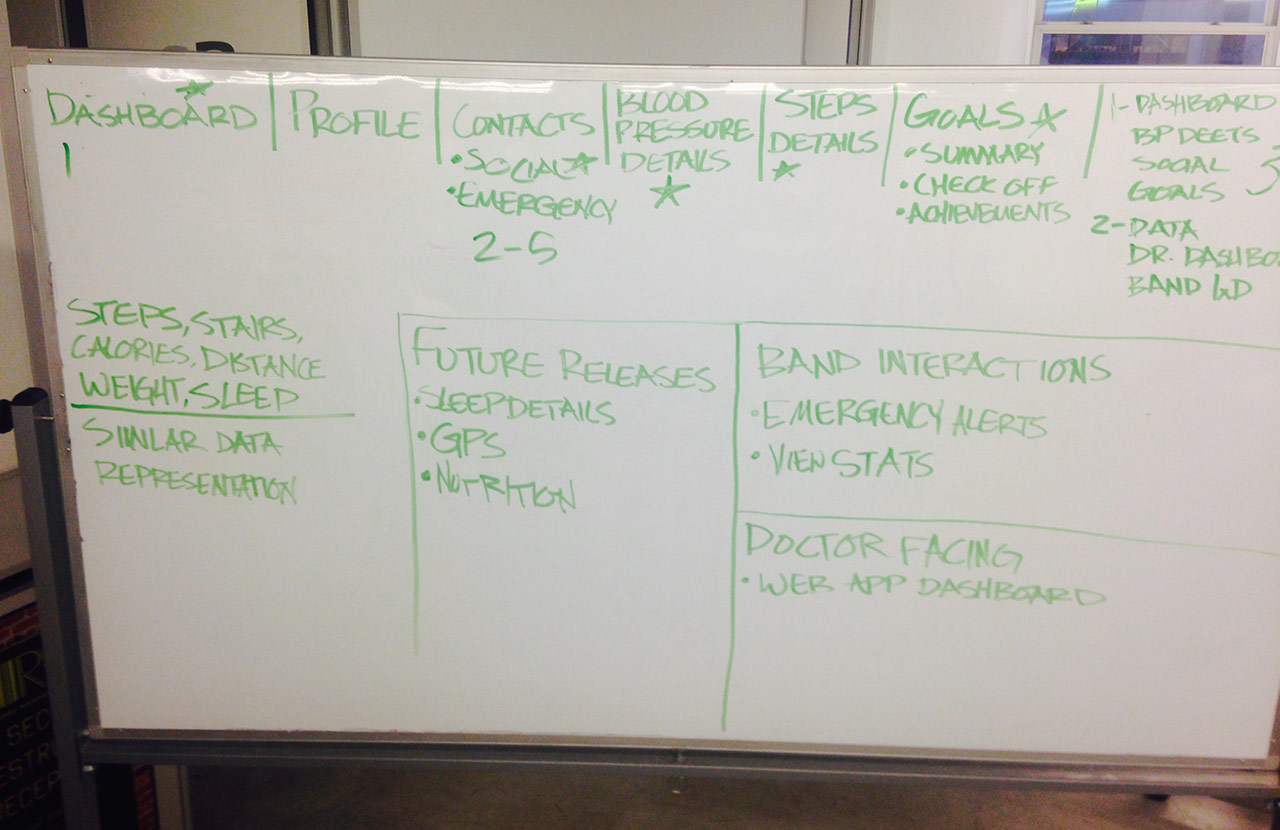 DASHBOARD
1
PROFILE
CONTACTS
• SOCIAL
• EMERGENCY
2-5
BLOOD
PRESSURE
DETAILS
STEPS
DETAILS
GOALS
• SUMMARY
• CHECK OFF
• ACHIEVEMENTS
1- DASHBOARD
BP DEETS
SOCIAL
GOALS
2- DATA
DR. DASHBO
BAND
STEPS, STAIRS,
CALORIES, DISTANCE
WEIGHT, SLEEP
SIMILAR DATA
REPRESENTATION
FUTURE RELEASES
• SLEEP DETAILS
• GPS
• NUTRITION
BAND INTERACTIONS
• EMERGENCY ALERTS
• VIEW STATS
DOCTOR FACING
• WEB APP DASHBOARD
SEC
ESTR
RECEP